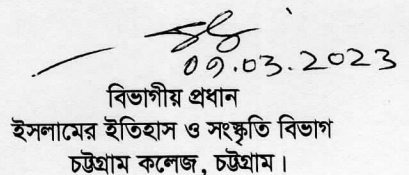 09.03.2023
বিভাগীয় প্রধান
ইসলামের ইতিহাস ও সংস্কৃতি বিভাগ
চট্টগ্রাম কলেজ, চট্টগ্রাম।